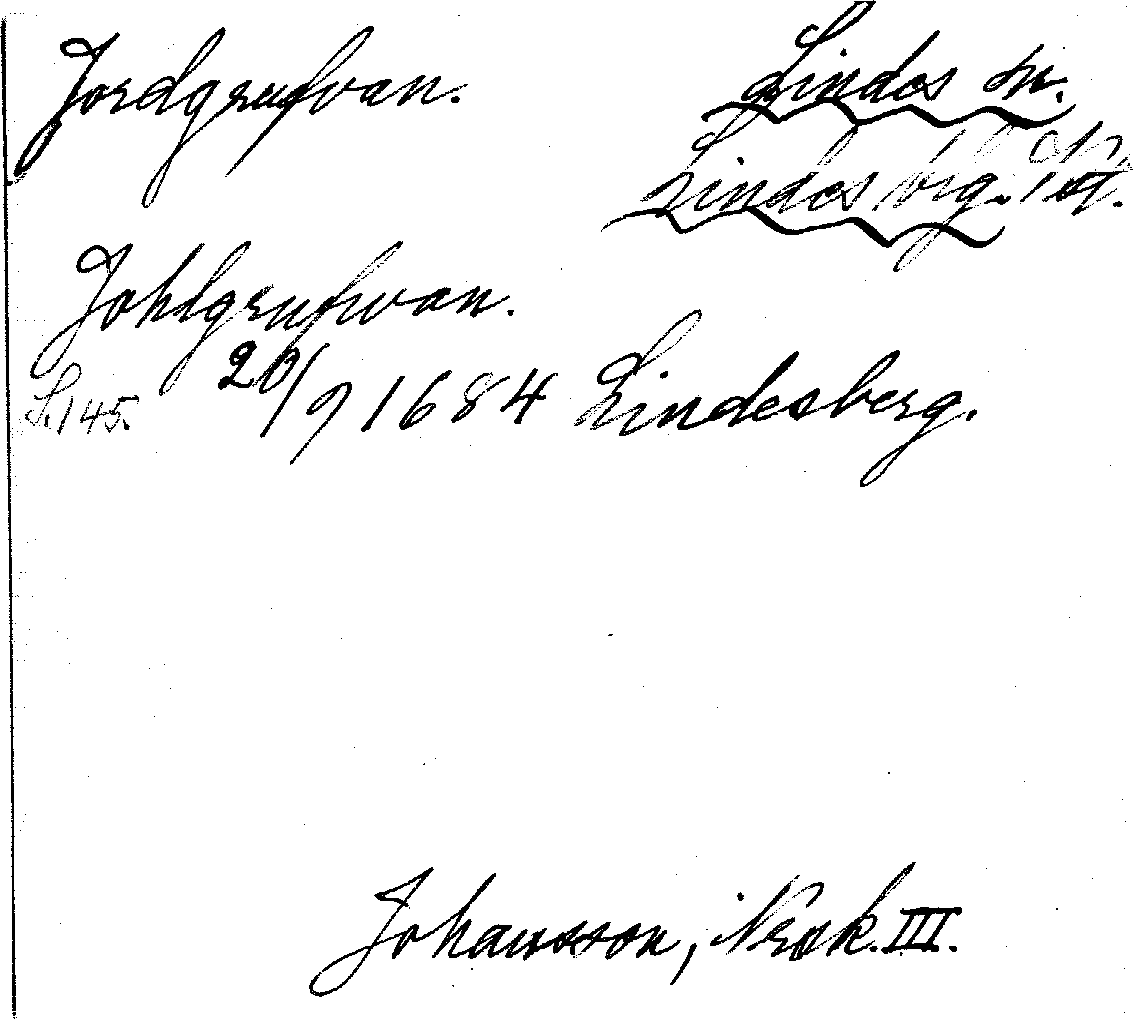 Jordgrufvan.
Lindes sn.
Lindes brg.
Johlgrufwan.
S. 145. 20/9 1684 Lindesberg.
Johansson, Norsk. III.